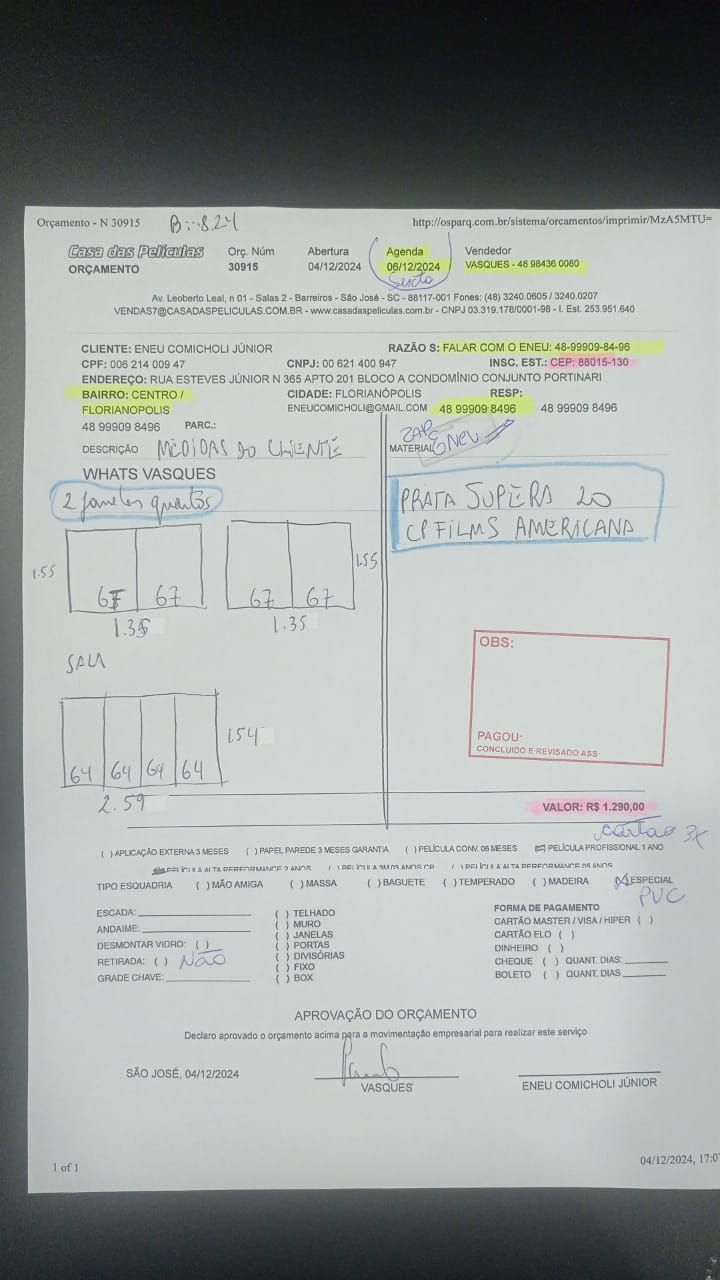 Orçamento - N 30915 B::8.24 http://osparq.com.br/sistema/orcamentos/imprimir/MzA5MTU=
Casa das Películas Orç. Núm Abertura Agenda Vendedor
ORÇAMENTO 30915 04/12/2024 06/12/2024 VASQUES - 48 98436 0080
Sexta
Av. Leoberto Leal, n 01 - Salas 2 - Barreiros - São José - SC - 88117-001 Fones: (48) 3240.0605 / 3240.0207
VENDAS7@CASADASPELICULAS.COM.BR - www.casadaspeliculas.com.br - CNPJ 03.319.178/0001-98 - I. Est. 253.951.640
CLIENTE: ENEU COMICHOLI JÚNIOR RAZÃO S: FALAR COM O ENEU: 48-99909-84-96
CPF: 006 214 009 47 CNPJ: 00 621 400 947 INSC. EST.: CEP: 88015-130
ENDEREÇO: RUA ESTEVES JÚNIOR N 365 APTO 201 BLOCO A CONDOMÍNIO CONJUNTO PORTINARI
BAIRRO: CENTRO / CIDADE: FLORIANÓPOLIS RESP:
FLORIANOPOLIS ENEUCOMICHOLI@GMAIL.COM 48 99909 8496 48 99909 8496
48 99909 8496 PARC.:
DESCRIÇÃO MEDIDAS DO CLIENTE MATERIAL ZAP ENEU
WHATS VASQUES
2 janelas quartos
PRATA SUPERA 20
CP FILMS AMERICANA
1.55 67 67 67 67 1.55
1.35 1.35
SALA
OBS:
64 64 64 64 1.54
PAGOU:
CONCLUIDO E REVISADO ASS:
2.59
VALOR: R$ 1.290,00
cartão 3x
( ) APLICAÇÃO EXTERNA 3 MESES ( ) PAPEL PAREDE 3 MESES GARANTIA ( ) PELÍCULA CONV. 06 MESES PELÍCULA PROFISSIONAL 1 ANO
PELÍCULA ALTA PERFORMANCE 2 ANOS ( ) PELÍCULA 3M 03 ANOS CP ( ) PELÍCULA ALTA PERFORMANCE 05 ANOS
TIPO ESQUADRIA ( ) MÃO AMIGA ( ) MASSA ( ) BAGUETE ( ) TEMPERADO ( ) MADEIRA (X) ESPECIAL
PVC
ESCADA: ( ) TELHADO FORMA DE PAGAMENTO
ANDAIME: ( ) MURO CARTÃO MASTER / VISA / HIPER ( )
DESMONTAR VIDRO: ( ) ( ) JANELAS CARTÃO ELO ( )
RETIRADA: ( ) NÃO ( ) PORTAS DINHEIRO ( )
( ) DIVISÓRIAS CHEQUE ( ) QUANT. DIAS:
GRADE CHAVE: ( ) FIXO BOLETO ( ) QUANT. DIAS
( ) BOX
APROVAÇÃO DO ORÇAMENTO
Declaro aprovado o orçamento acima para a movimentação empresarial para realizar este serviço
SÃO JOSÉ, 04/12/2024
VASQUES ENEU COMICHOLI JÚNIOR
1 of 1 04/12/2024, 17:0